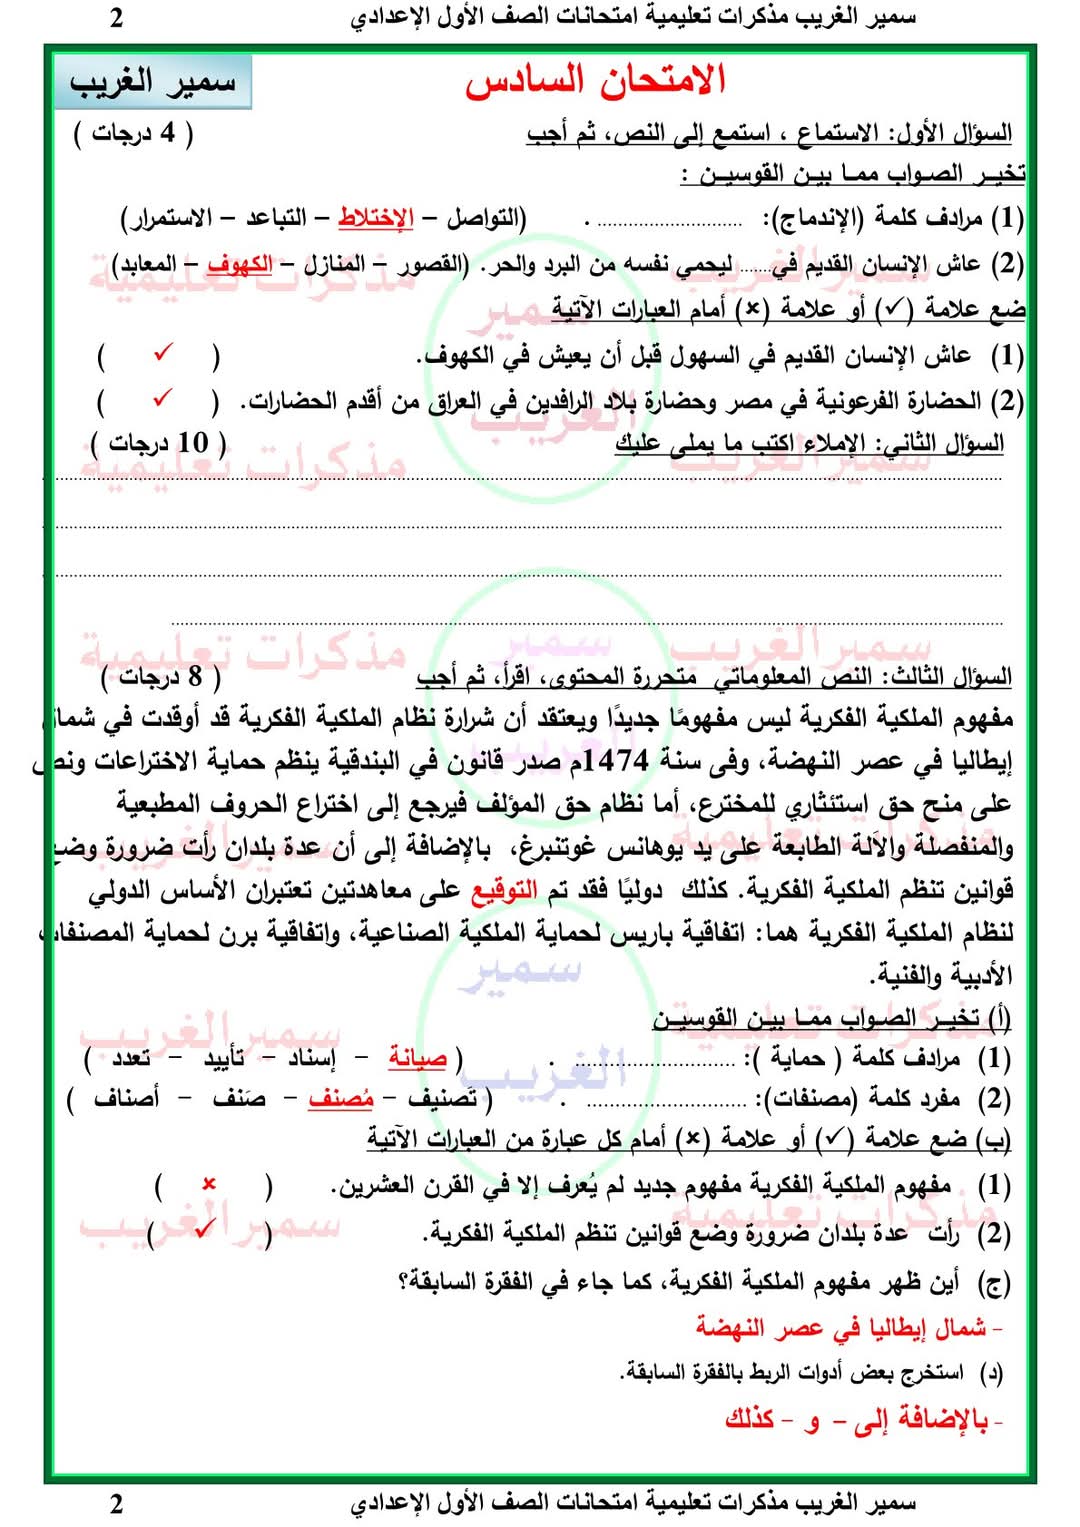 سمير الغريب مذكرات تعليمية امتحانات الصف الأول الإعدادي 2
الامتحان السادس
سمير الغريب
السؤال الأول: الاستماع ، استمع إلى النص، ثم أجب ( 4 درجات )
تخيـر الصـواب ممـا بيـن القوسيـن :
(1) مرادف كلمة (الإندماج): ............................ . (التواصل – الإختلاط – التباعد – الاستمرار)
(2) عاش الإنسان القديم في....... ليحمي نفسه من البرد والحر. (القصور – المنازل – الكهوف – المعابد)
ضع علامة (✓) أو علامة (×) أمام العبارات الآتية
(1) عاش الإنسان القديم في السهول قبل أن يعيش في الكهوف. ( ✓ )
(2) الحضارة الفرعونية في مصر وحضارة بلاد الرافدين في العراق من أقدم الحضارات. ( ✓ )
السؤال الثاني: الإملاء اكتب ما يملى عليك ( 10 درجات )
السؤال الثالث: النص المعلوماتي متحررة المحتوى، اقرأ، ثم أجب ( 8 درجات )
مفهوم الملكية الفكرية ليس مفهومًا جديدًا ويعتقد أن شرارة نظام الملكية الفكرية قد أوقدت في شمال
إيطاليا في عصر النهضة، وفى سنة 1474م صدر قانون في البندقية ينظم حماية الاختراعات ونص
على منح حق استئثاري للمخترع، أما نظام حق المؤلف فيرجع إلى اختراع الحروف المطبعية
والمنفصلة والآلة الطابعة على يد يوهانس غوتنبرغ، بالإضافة إلى أن عدة بلدان رأت ضرورة وضع
قوانين تنظم الملكية الفكرية. كذلك دوليًا فقد تم التوقيع على معاهدتين تعتبران الأساس الدولي
لنظام الملكية الفكرية هما: اتفاقية باريس لحماية الملكية الصناعية، واتفاقية برن لحماية المصنفات
الأدبية والفنية.
(أ) تخيـر الصـواب ممـا بيـن القوسيـن
(1) مرادف كلمة ( حماية ): ............................ . ( صيانة – إسناد – تأييد – تعدد )
(2) مفرد كلمة (مصنفات): ............................ . ( تَصنيف – مُصنف – صَنف – أصناف )
(ب) ضع علامة (✓) أو علامة (×) أمام كل عبارة من العبارات الآتية
(1) مفهوم الملكية الفكرية مفهوم جديد لم يُعرف إلا في القرن العشرين. ( × )
(2) رأت عدة بلدان ضرورة وضع قوانين تنظم الملكية الفكرية. ( ✓ )
(ج) أين ظهر مفهوم الملكية الفكرية، كما جاء في الفقرة السابقة؟
- شمال إيطاليا في عصر النهضة
(د) استخرج بعض أدوات الربط بالفقرة السابقة.
- بالإضافة إلى – و – كذلك
سمير الغريب مذكرات تعليمية امتحانات الصف الأول الإعدادي 2